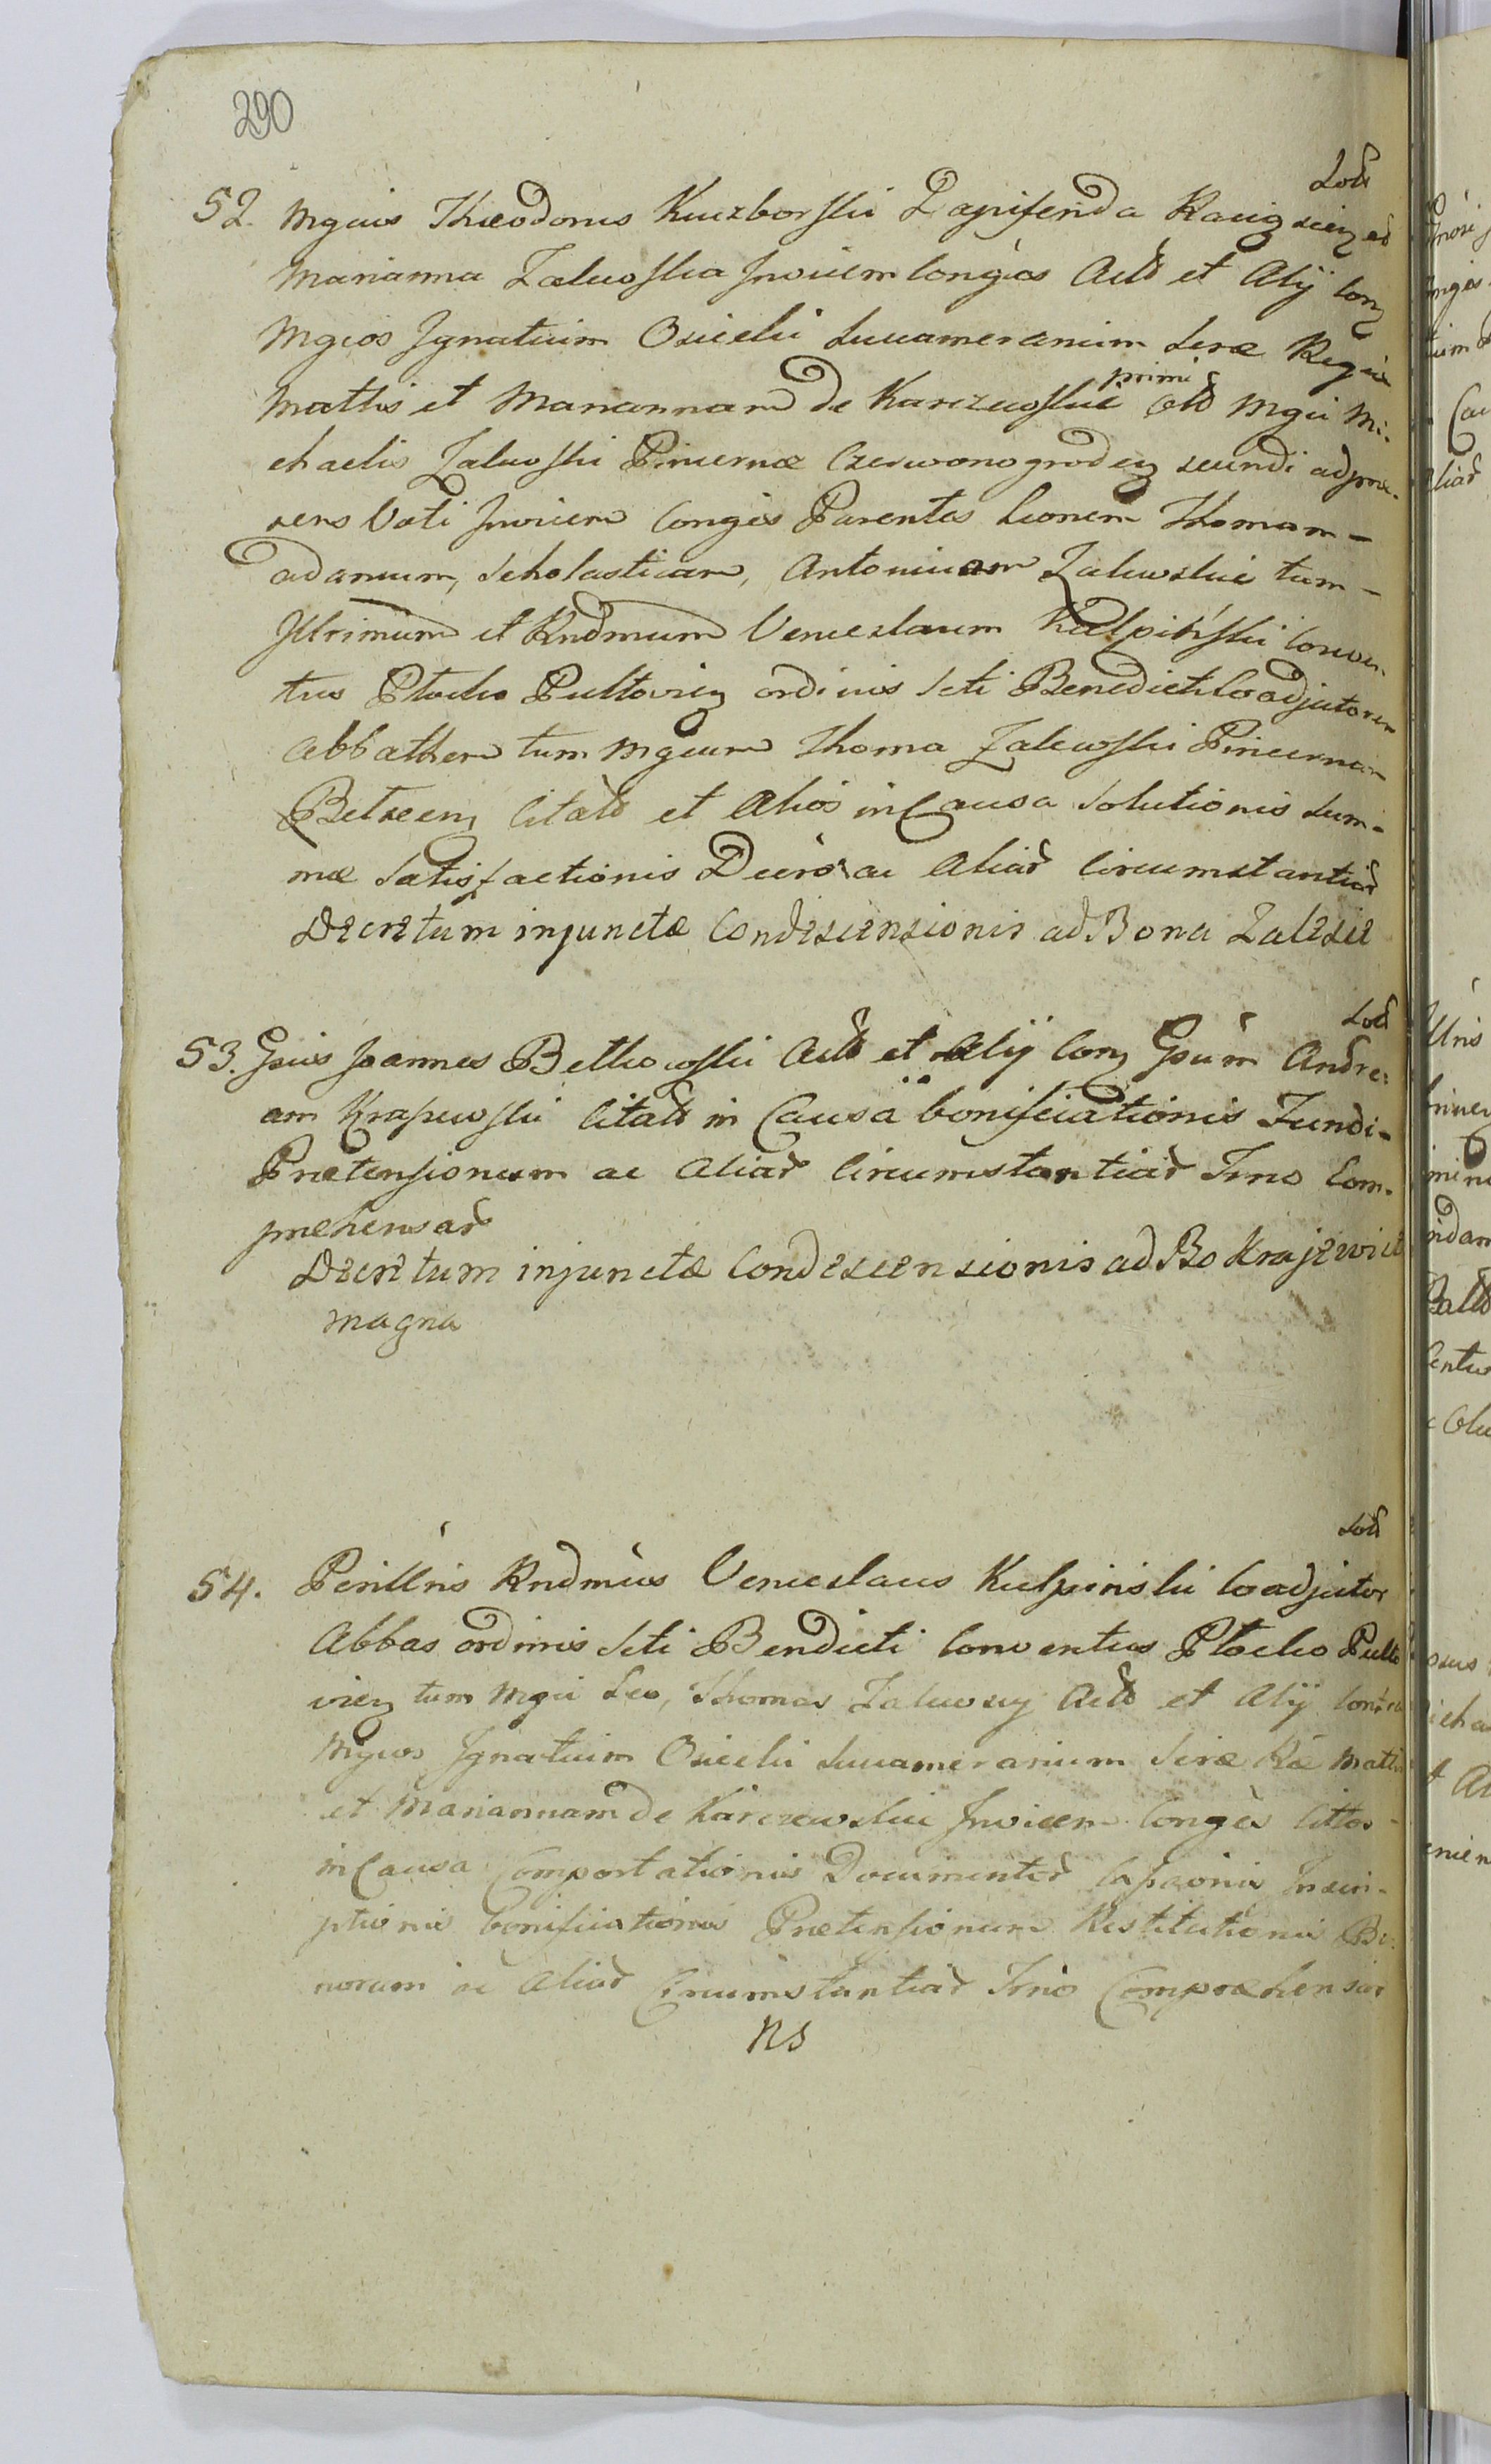 290
Sod
52. Mgcus Theodorus Kuczborski Dapiferida Rawgscien et
Marianna Zalewska Invicem Conges Actd et Alij Con
Mgcos Ignatium Osiecki Succamerarium Særæ Regiæ
Mattis et Mariannam de Karczewskie primi old Mgci Mi-
chaelis Zalewski Pincernæ Czerwonogroden secundi ad præ-
sens Voti Invicem Conges Parentes Leonem Thomam -
Adamum, Scholasticam, Antoninam Zalewskie tum -
Illrimum et Rndmum Venceslaum Kulpiński Conven-
tus Plocko Pultovien ordinis Scti Benedicti Coadjutorem
Abbathem tum Mgcum Thoma Zalewski Pincernam
Betzeen Citatd et Alios in Causa Solutionis Sum-
mæ Satisfactionis Decrō ac Aliad Circumstantiad
Decretum injunctæ Condescensionis ad Bona Zalesie
Sod
53. Gsus Joannes Betkowski Actd et Alij Con Gsum Andre-
am Krajewski Citatd in Causa bonificationis Fundi-
Prætensionum ac Aliad Circumstantiad Trno Com-
præhensad
Decretum injunctæ Condescensionis ad Bo Krajewice
magna
Sod
54. Perillris Rndmus Venceslaus Kulpinski Coadjutor
Abbas ordinis Scti Bendicti Conventus Plocko Pulto
vien tum Mgci Leo, Thomas Zalewscy Actd et Alij Contra
Mgcos Ignatium Osiecki Succamerarium Seræ Ræ Mattis
et Mariannam de Karczewskie Invicem Conges Cittos -
in Causa Comportationis Documentod Capsionis Inscri-
ptionis bonificationis Prætensionum Restitutionis Bo-
norum ac Aliad Circumstantiad Trno Compræhensad
NS